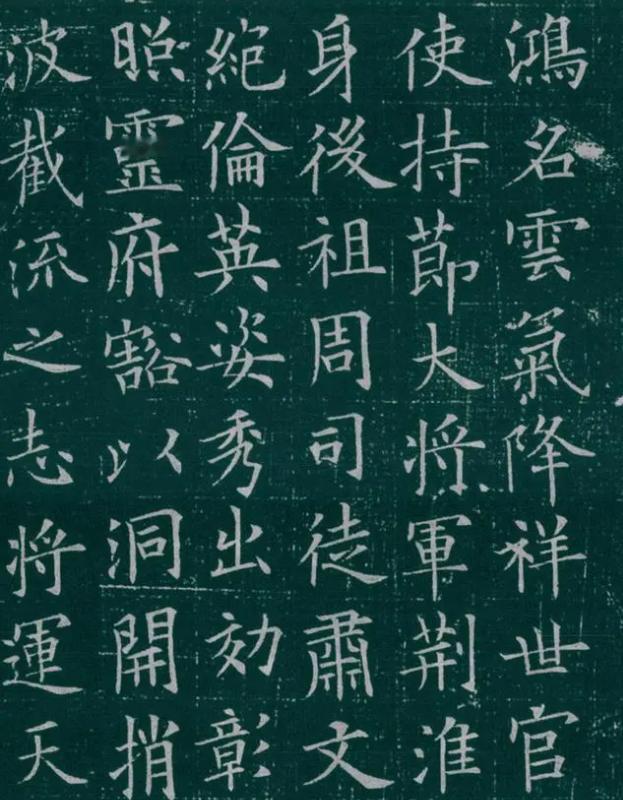 鴻名雲氣降祥世官
使持節大將軍荆淮
身後祖周司徒肅文
絶倫英姿秀出効彰
照靈府豁以洞開捎
波截流之志将運天